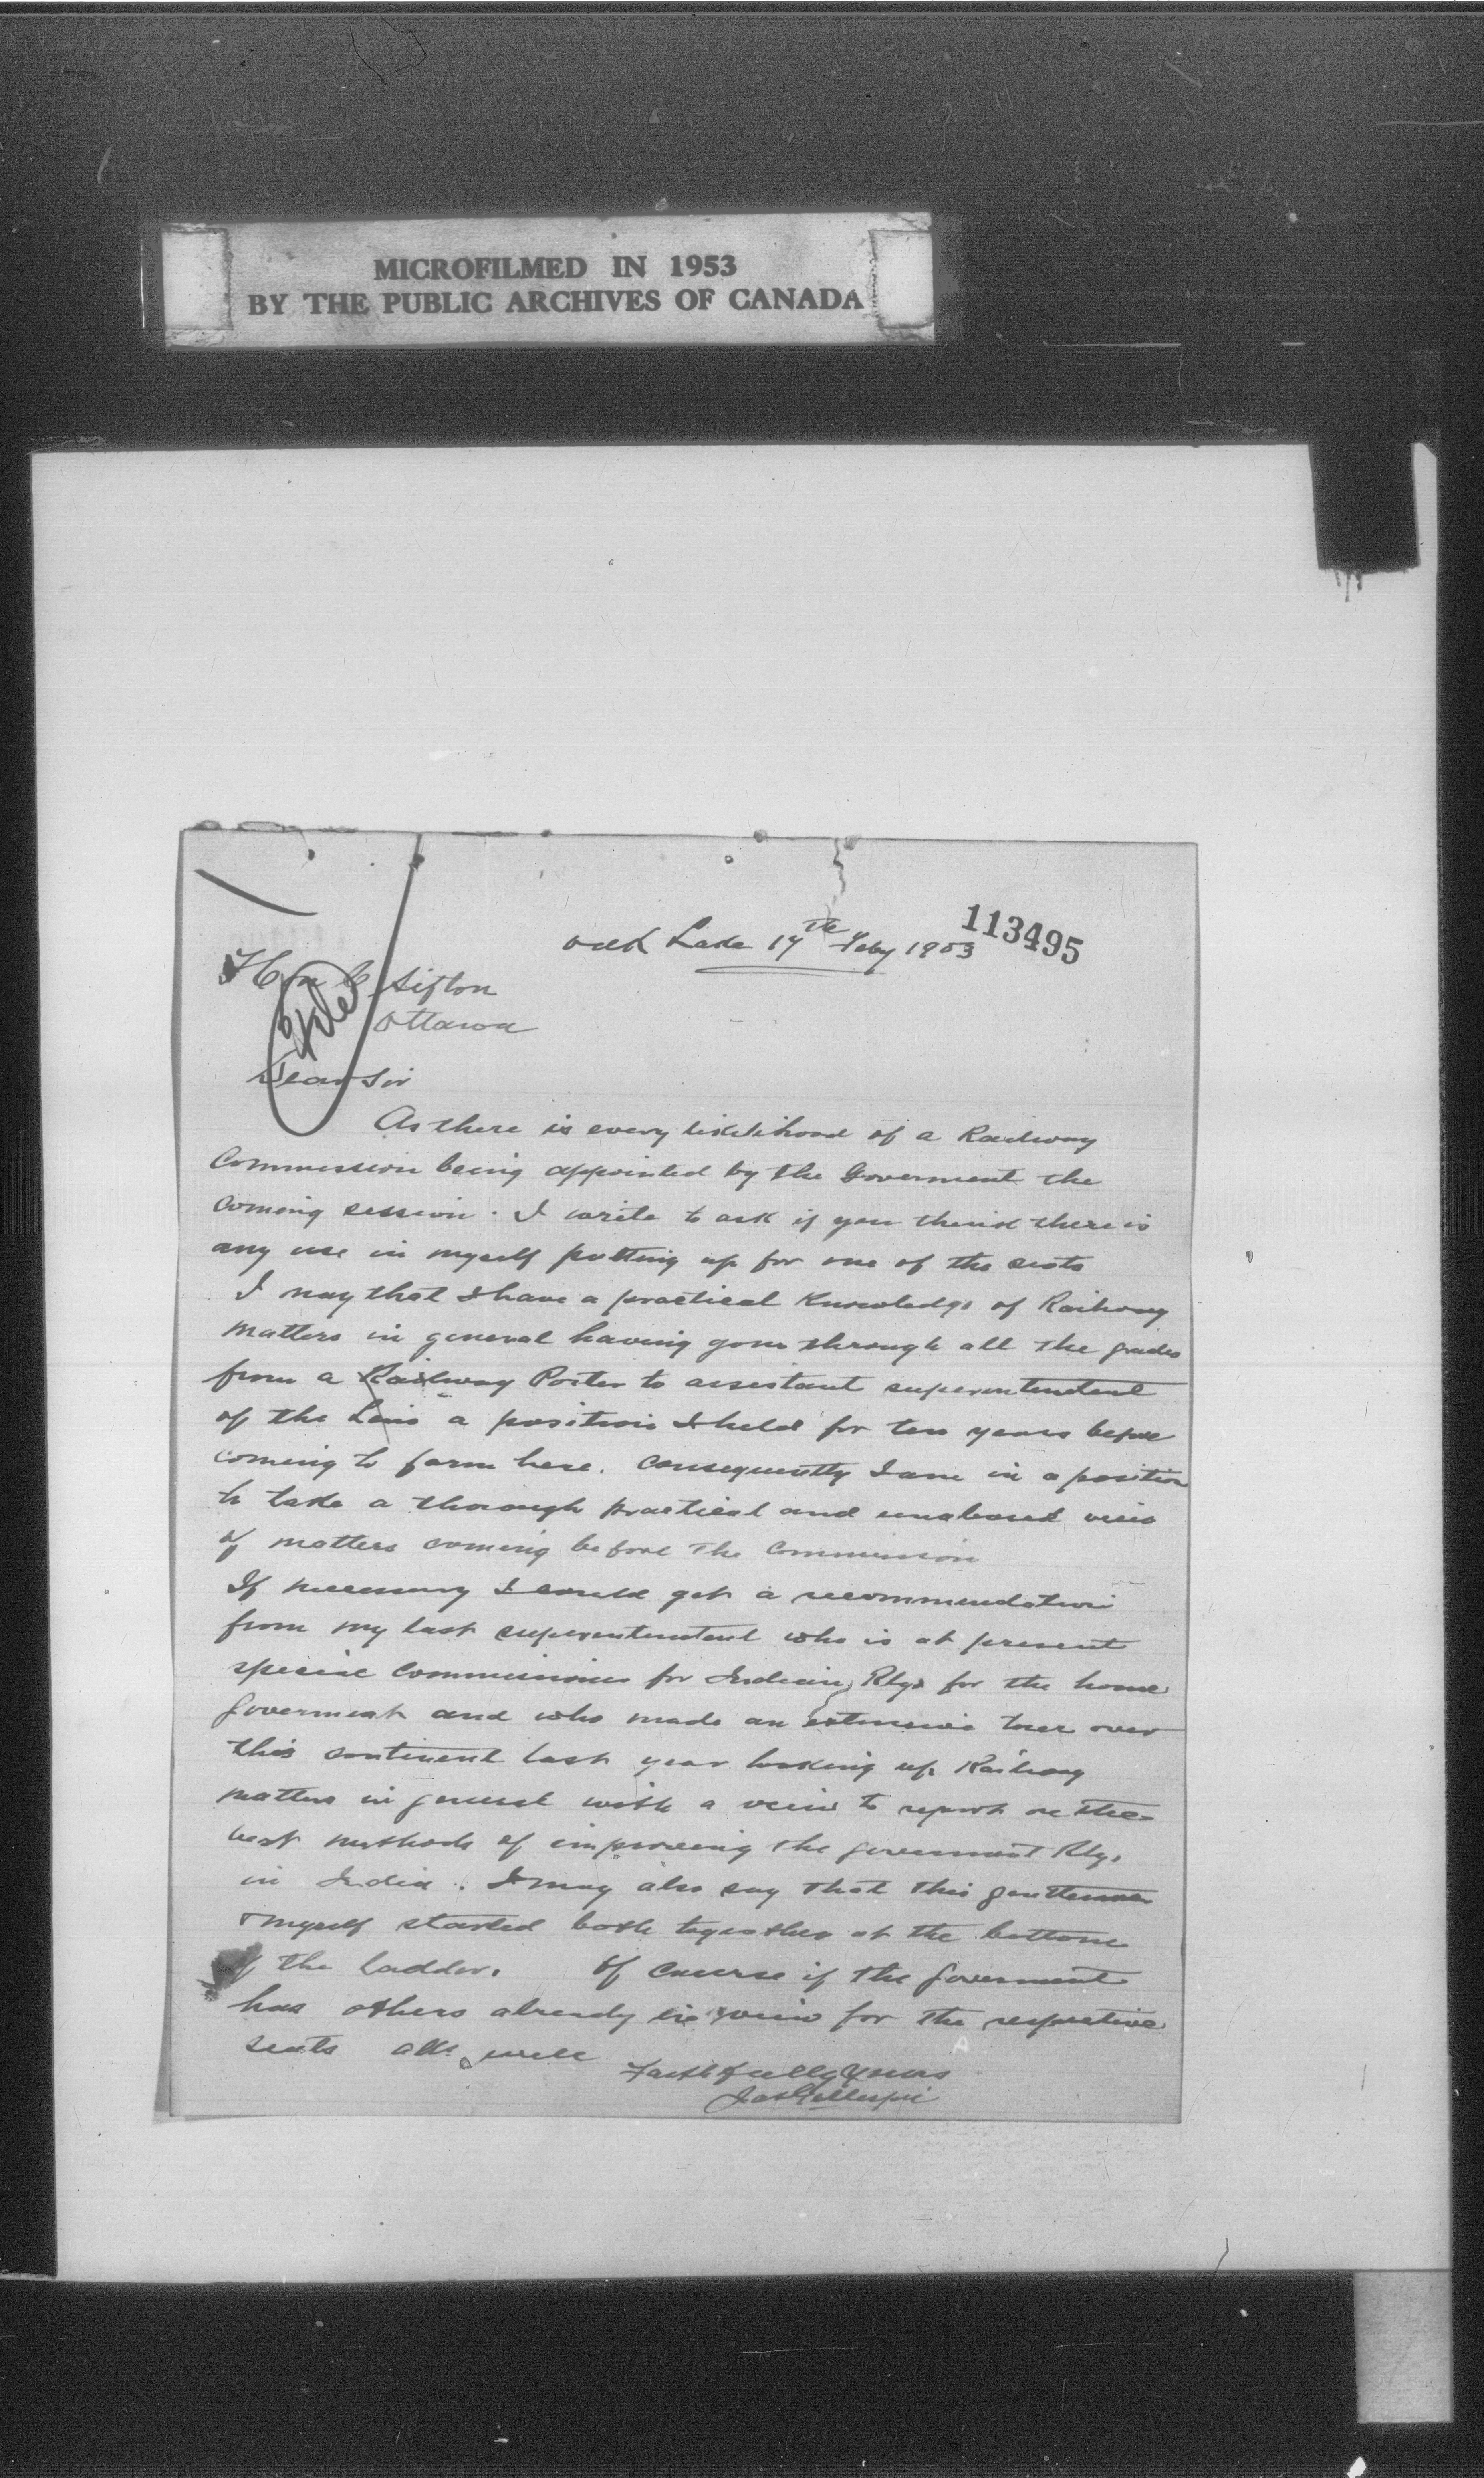 MICROFILMED IN 1953
BY THE PUBLIC ARCHIVES OF CANADA
113495
Oak Lake 17th Feby 1903
Hon C Sifton
Ottawa
File
Dear Sir
As there is every likelihood of a Railway
Commission being appointed by the Goverment the
coming session. I write to ask if you think there is
any use in myself putting up for one of the seats
I may that I have a practical knowledge of Railway
matters in general having gone through all the grades
from a Railway Porter to assistant superintendent
of the Line a position I held for ten years before
coming to farm here. Consequently I am in a position
to take a thorough practical and unabased view
of matters coming before the Commission
If necessary I could get a recommendation
from my last superintendent who is at present
special Commissioner for Indian Rlys for the home
goverment and who made an extensive tour over
this continent last year looking up Railway
matters in general with a view to report on the
best methods of improving the goverment Rlys
in India. I may also say that this gentleman
& myself started both together at the bottom
of the ladder. Of course if the goverment
has others already in view for the respective
seats all well
Faithfully Yours
Jas Gillespie